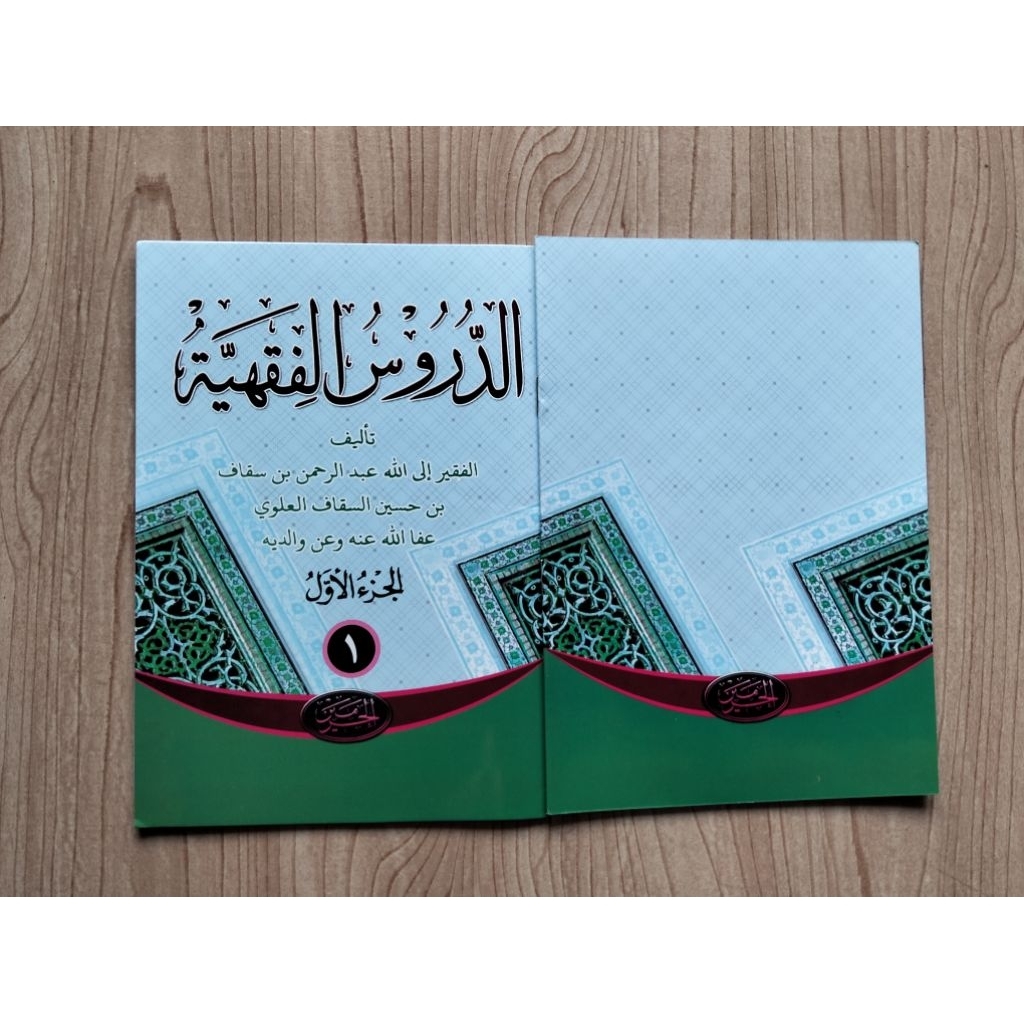 الدُّرُوْسُ الْفِقْهِيَّةُ
تأليف
الفقير إلى الله عبد الرحمن بن سقاف
بن حسين السقاف العلوي
عفا الله عنه وعن والديه
الجُزْءُ الْأَوَّلُ
١
الحرمين
الحرمين